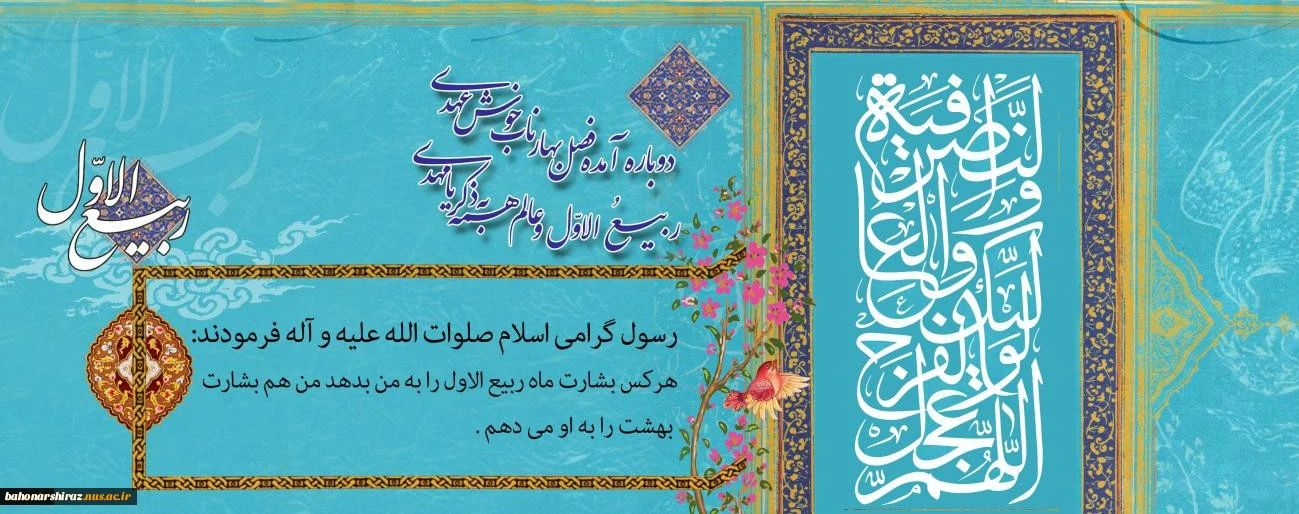 اللّهُمَّ عَجِّل
لِوَلِیِّکَ الفَرَجَ
وَالعافِیَةَ وَالنَّصرَ
دوباره آمده فصل بهار ناب خوش عهدی
ربیعُ الاوّل و عالم همه به ذکر یا مهدی
ربیع الاوّل
رسول گرامی اسلام صلوات الله علیه و آله فرمودند:
هرکس بشارت ماه ربیع الاول را به من بدهد من هم بشارت
بهشت را به او می دهم .
ربیع الاوّل
bahonarshiraz.nus.ac.ir